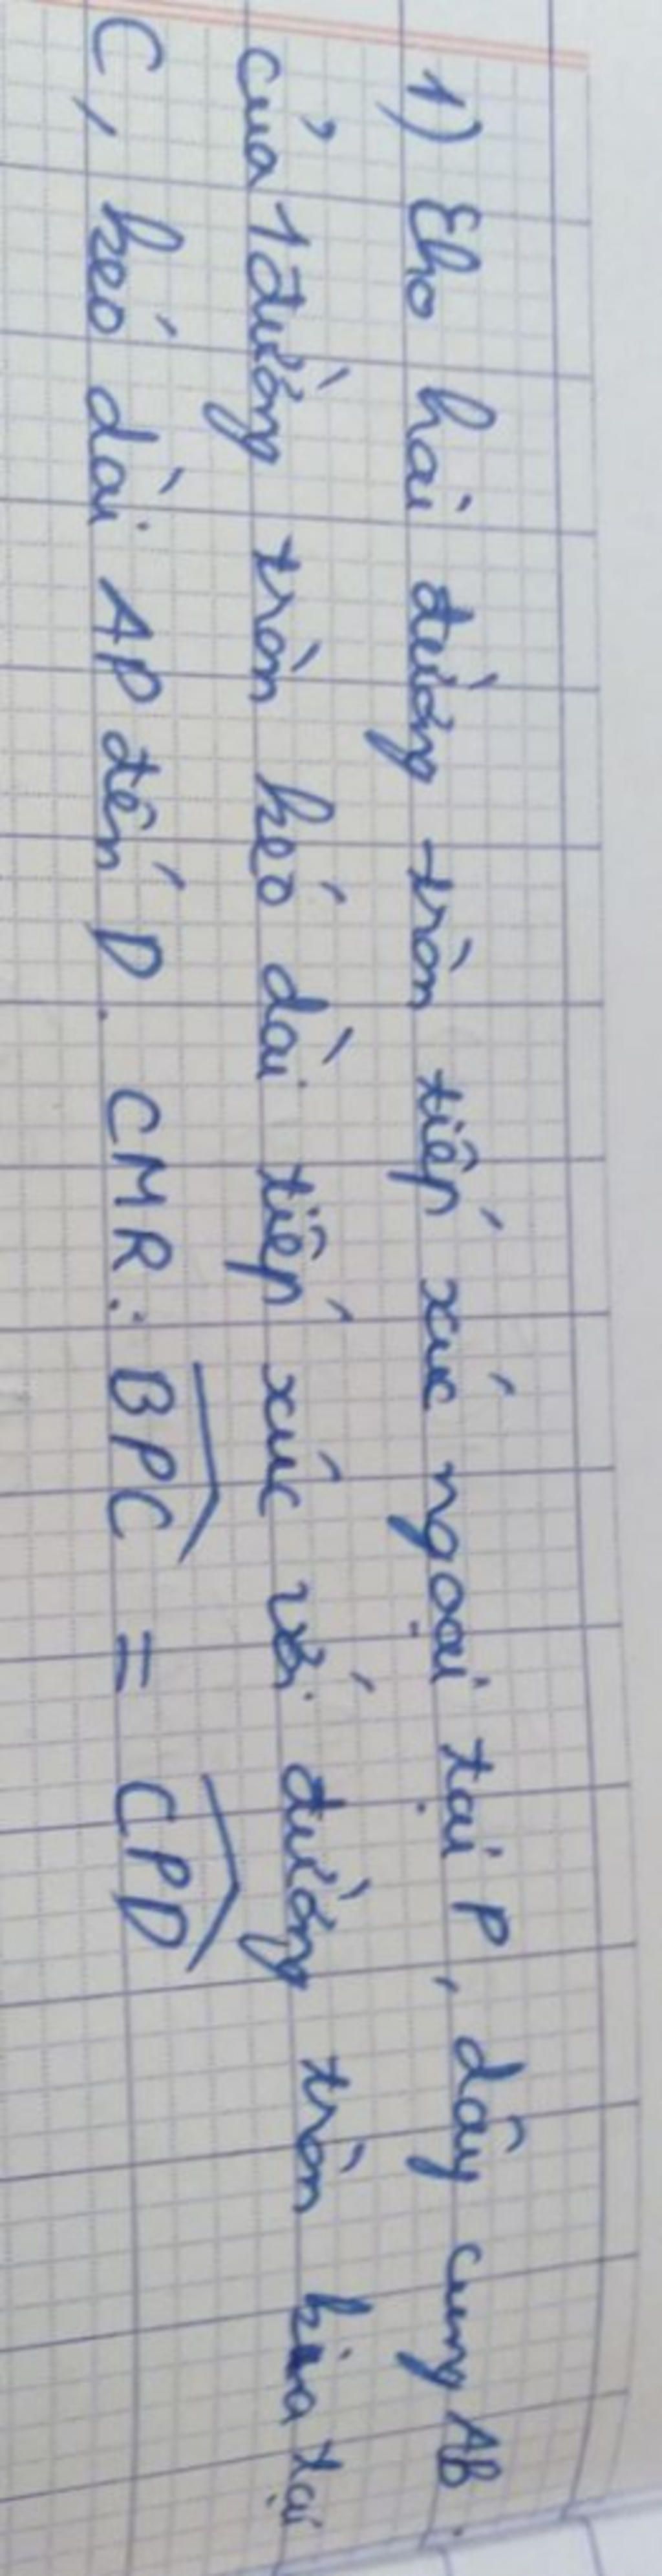 1) Cho hai đường tròn tiếp xúc ngoài tại P, dây cung AB
của 1 đường tròn kéo dài tiếp xúc với đường tròn kia tại
C, kéo dài AP đến D. CMR: \widehat{BPC} = \widehat{CPD}